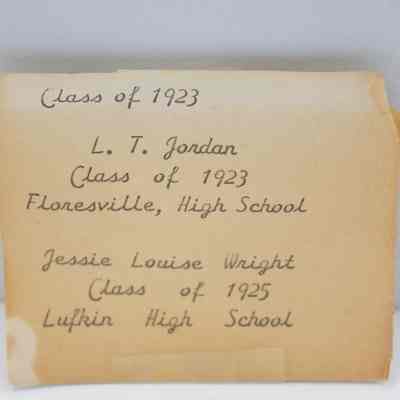 Class of 1923
L. T. Jordan
Class of 1923
Floresville, High School
Jessie Louise Wright
Class of 1925
Lufkin High School